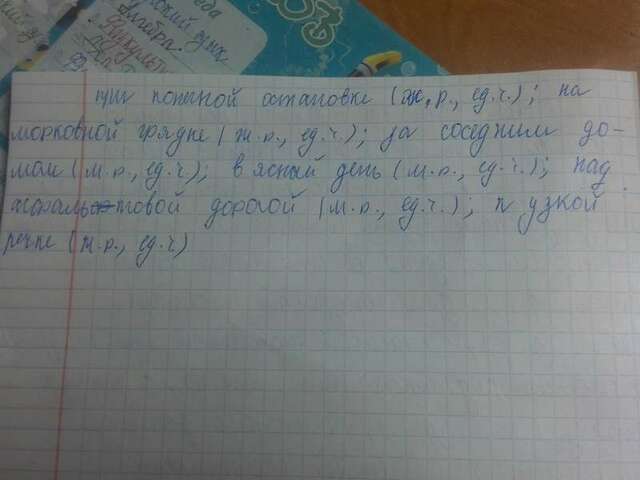 Алгебра.
при конечной остановке (ж.р., ед.ч.); на
морковной грядке (ж.р., ед.ч.); за соседним до-
мом (м.р., ед.ч.); в ясный день (м.р., ед.ч.); над
асфальтовой дорогой (м.р., ед.ч.); к узкой
речке (ж.р., ед.ч)